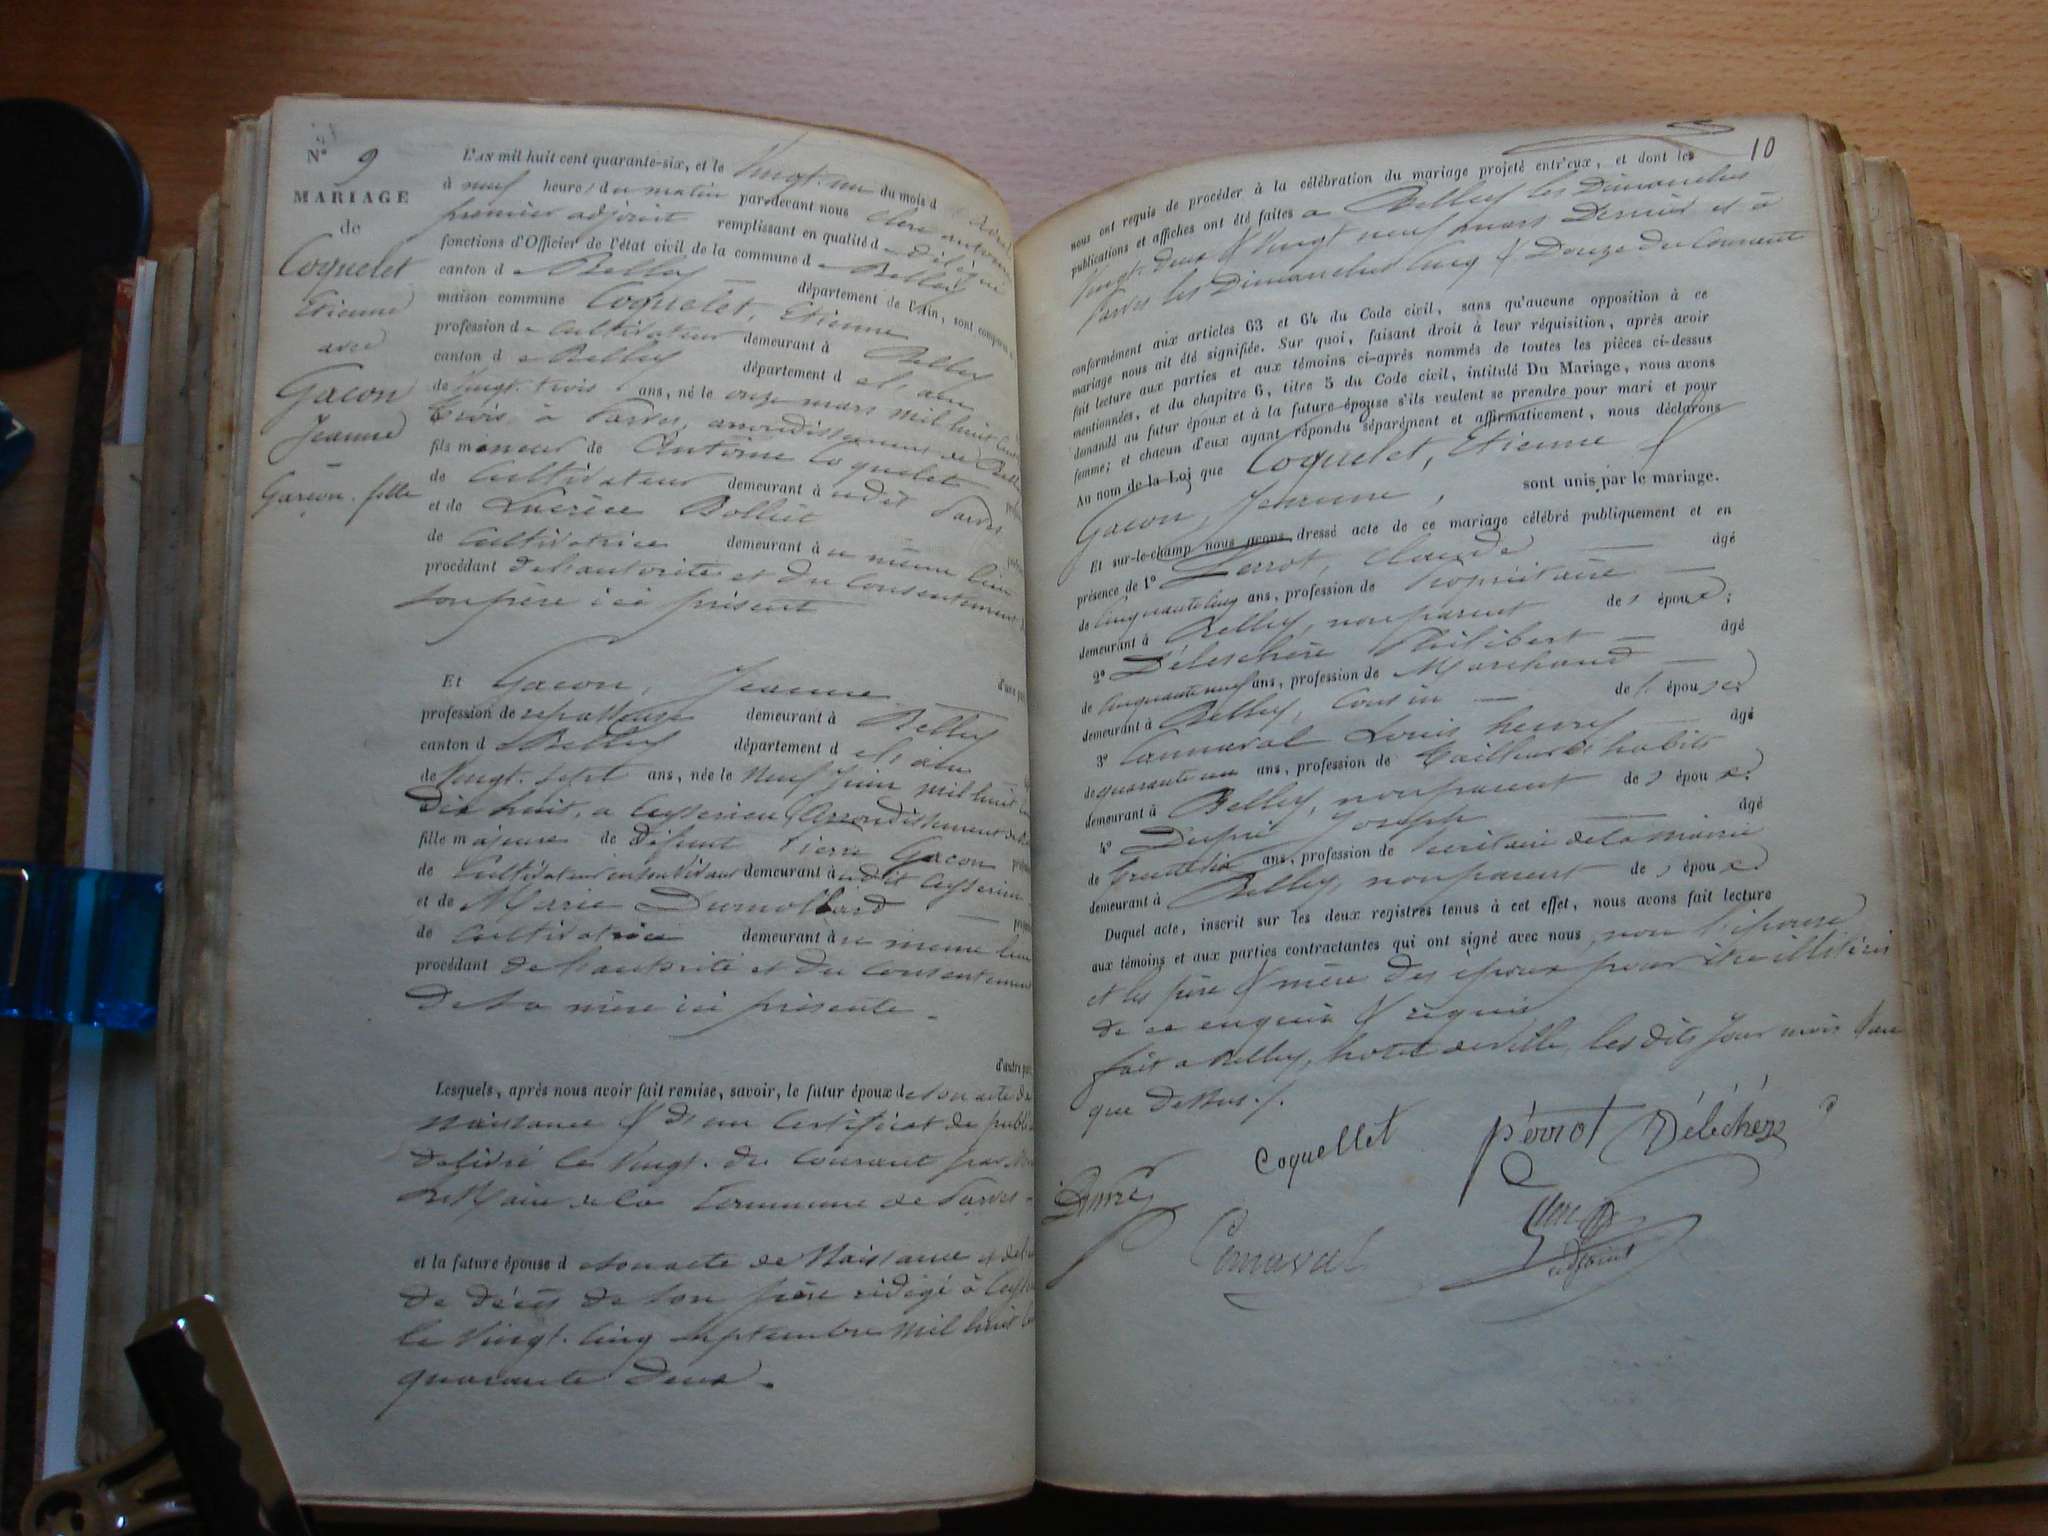 N° 9
MARIAGE
de
Coquelet
Etienne
avec
Gacon
Jeanne
Garçon. fille
L'AN mil huit cent quarante-six, et le Vingt. un du mois d
à neuf heures du matin par-devant nous Clerc antoine
premier adjoint remplissant en qualité d
fonctions d'Officier de l'état civil de la commune de Belley
canton de Belley département de l'Ain, sont comparus
maison commune Coquelet, Etienne
profession de Cultivateur demeurant à Belley
canton de Belley département de l'ain
de Vingt. trois ans, né le onze mars mil huit cent
trois à Parves, arrondissement de Belley
fils mineur de Antoine Coquelet
de Cultivateur demeurant à udit Parves
et de Lucrèce Bolliet
de Cultivatrice demeurant à u même lieu
procédant de l'autorité et du Consentement
Son père ici présent
d'une part
Et Gacon, Jeanne
profession de repasseuse demeurant à Belley
canton de Belley département de l'ain
de Vingt. sept ans, née le Neuf Juin mil huit cent
Dix huit, a Ceyzerieu (arrondissement de
fille majeure de Défunt Pierre Gacon
de Cultivateur en son vivant demeurant à udit Ceyzerieu
et de Marie Dumollard
de Cultivatrice demeurant à u meme lieu
procédant de l'autorité et du Consentement
De Sa mère ici présente.
d'autre part
Lesquels, après nous avoir fait remise, savoir, le futur époux de son acte de
Naissance & d'un Certificat de publi
délivré le Vingt. du courant par
le Maire de la Commune de Parves
et la future épouse de son acte de Naissance et de
de décès de Son père rédigé à
le Vingt. Cinq Septembre Mil huit
quarante Deux.
10
nous ont requis de procéder à la célébration du mariage projeté entr'eux, et dont les
publications et affiches ont été faites a Belley les Dimanches
Vingt. Deux & Vingt neuf mars Dernier et à
Parves les Dimanches Cinq & Douze du Courant
conformément aux articles 63 et 64 du Code civil, sans qu'aucune opposition à ce
mariage nous ait été signifiée. Sur quoi, faisant droit à leur réquisition, après avoir
fait lecture aux parties et aux témoins ci-après nommés de toutes les pièces ci-dessus
mentionnées, et du chapitre 6, titre 5 du Code civil, intitulé Du Mariage, nous avons
demandé au futur époux et à la future épouse s'ils veulent se prendre pour mari et pour
femme; et chacun d'eux ayant répondu séparément et affirmativement, nous déclarons
Au nom de la Loi que Coquelet, Etienne &
Gacon, Jeanne, sont unis par le mariage.
Et sur-le-champ nous avons dressé acte de ce mariage célébré publiquement et en
présence de 1° Perrot, Claude âgé
de Cinquante cinq ans, profession de propriétaire
demeurant à Belley, non parent des époux;
2° Délechère Philibert âgé
de Cinquante neuf ans, profession de Marchand
demeurant à Belley, Cousin de l'épouse
3° Canaval Louis henry âgé
de quarante un ans, profession de tailleur d'habits
demeurant à Belley, non parent des époux.
4° Dupré Joseph âgé
de trente dix ans, profession de secrétaire de la mairie
demeurant à Belley, non parent des époux.
Duquel acte, inscrit sur les deux registres tenus à cet effet, nous avons fait lecture
aux témoins et aux parties contractantes qui ont signé avec nous, non l'épouse
et les père & mère des époux pour être illitérés
de ce enquis & requis
fait a Belley, hotel de ville, les dits jour mois & an
que Dessus./.
Coquellet Pérrot Délèchère
Dupré
Canaval
Clerc
adjoint